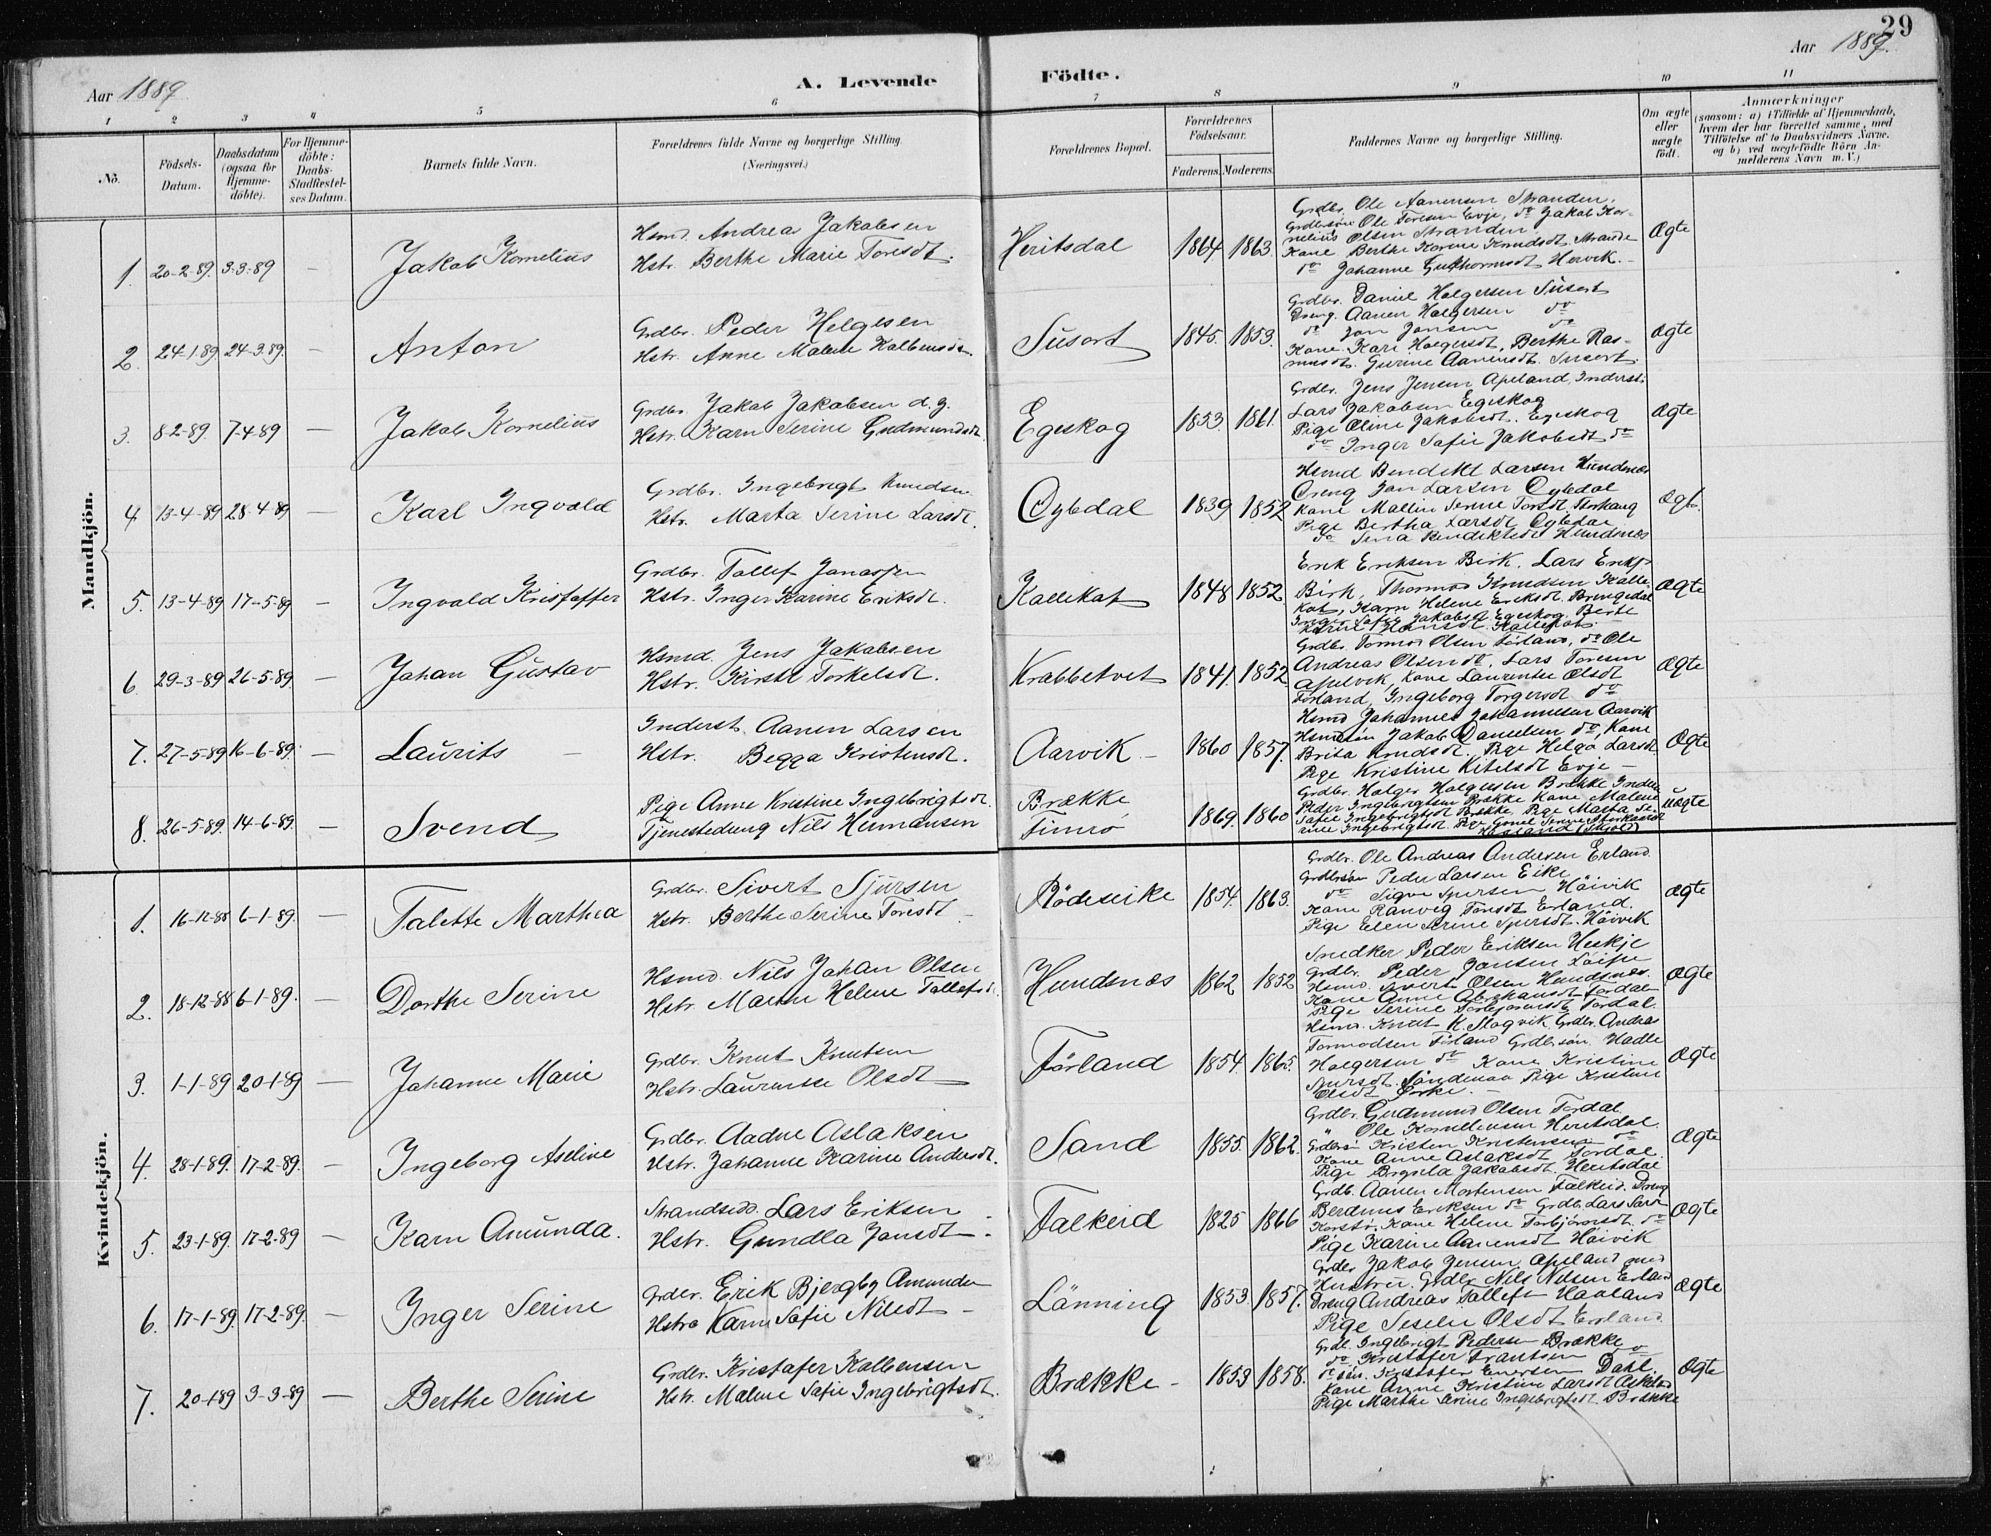 29
Aar 1889
A. Levende Födte.
Aar 1889.
1 2 3 4 5 6 7 8 9 10 11
No.
Födsels-Datum.
Daabsdatum (ogsaa for Hjemme-döbte).
For Hjemme-döbte: Daabs-Stadfæstel-ses Datum.
Barnets fulde Navn.
Forældrenes fulde Navne og borgerlige Stilling. (Næringsvei.)
Forældrenes Bopæl.
Forældrenes Födselsaar.
Faderens. Moderens.
Faddernes Navne og borgerlige Stilling.
Om ægte eller uægte födt.
Anmærkninger
(saasom: a) i Tilfælde af Hjemmedaab, hvem der har forrettet samme, med Tilföielse af to Daabsvidners Navne. og b) ved uægtefödte Börn An-melderens Navn m. V.)
Mandkjön.
1. 20-2-89. 3-3-89 — Jakob Kornelius
Hsmd. Andrea Jakobsen
Hstr. Berthe Marie Toresdt.
Heritsdal 1864 1863.
Grdbr. Ole Aanensen Stranden,
Grdbrsön Ole Toresen Evje, do Jakob Kor-
nelius Olsen Stranden
Kane Berthe Karine Knudsdt. Strande
do Johanne Gutthormsdt Hervik.
Ægte
2. 24-1-89 24-3-89. — Anton
Grdbr. Peder Helgesen
Hstr. Anne Malene Kolbensdt.
Susort 1845. 1853.
Grdbr. Daniel Holgersen Susort
Dreng. Aanen Holgersen do
do Jon Jonsen do
Kane Kari Holgersdt, Berthe Ras-
musdt. Gurine Aanensdt. Susort.
Ægte
3. 8-2-89. 7-4-89 — Jakob Kornelius
Grdbr. Jakob Jakobsen d.y.
Hstr. Karn Serine Gudmundsdt.
Egeskog 1853. 1861.
Grdbr. Jens Jensen Apeland, Inderst.
Lars Jakobsen Egeskog
Pige Eline Jakobsdt. Egeskog
do Inger Safie Jakobsdt do
Ægte
4 13-4-89 28-4-89 — Karl Ingvald
Grdbr. Ingebrigt Knudsen
Hstr. Marta Serine Larsdt.
Oybdal 1839 1852
Hsmd Bendikt Larsen Hundsnes
Dreng Jon Larsen Oybdal
Kane Mallin Serine Torsdt
Pige Bertha Larsdt Oybdal
do Sina Bendiktsdt Hundsnes
Ægte
5. 13-4-89 17-5-89 — Ingvald Kristoffer
Grdbr. Tollef Jonassen
Hstr. Inger Karine Eriksdt.
Kallekat 1848 1852
Erik Eriksen Birk. Lars Eriks
Birk, Thormod Knudsen Kalle-
kat, Karn Helene Eriksdt. Bringedal
Inger Safie Jakobsdt Egeskog, Berte
Karine Hansdt Kallekat
Ægte
6. 29-3-89 26-5-89 — Johan Gustav
Hsmd. Jens Jakobsen
Hstr. Kirste Torkelsdt.
Krabbetvet 1841. 1852
Grdbr. Tormod Olsen Førland, do Ole
Andreas Olsen do. Lars Toresen
Apelvik, Kone Laurentse Olsdt
Førland, Ingeborg Torgersdt do
Ægte
7. 27-5-89 16-6-89. — Laurits —
Inderst. Aanen Larsen
Hstr. Begga Kristensdt.
Aarvik — 1860 1857.
Hsmd Johannes Johannesen Aarvik
Hsmdsön Jakob Danielsen do, Kane
Brita Knudsdt. Pige Helga Larsdt.
Pige Kristine Kitelsdt Evje —
Ægte
8. 26-5-89. 14-6-89. — Svend
Pige Anne Kristine Ingebrigtsdt.
Tjenestedreng Nils Hermansen
Brække
Timrø 1869. 1860
Grdbr. Holger Holgersen Brække Inderst
Peder Ingebrigtsen Brække Kane Malene
Safie Ingebrigtsdt Brække. Pige Marta Se-
rine Ingebrigtsdt. Pige Gonil Serine
uægte
Kvindekjön.
1. 16-12-88 6-1-89. — Talette Marthea
Grdbr. Sivert Sjursen
Hstr. Berthe Serine Toresdt —
Rödeseike 1854. 1863.
Grdbr. Ole Andreas Andersen Erland.
Grdbrsøn Peder Larsen Eike
do Sigve Sjursen Höivik
Kane Ranveg Toresdt Erland.
Pige Elen Serine Sjursdt. Höivik
Ægte
2. 18-12-88 6-1-89. — Dorthe Serine
Hsmd. Nils Johan Olsen
Hstr. Maren Helene Tollefsdt.
Hundsnæs 1862 1852
Snedker Peder Eriksen Heskje
Grdbr. Peder Jonsen
Hsmd. Sivert Olsen Hundsnæs.
Kane Anne Abrahamsdt Tordal
Pige Serine Torbjørnsdt. Tordal.
Ægte
3. 1-1-89 20-1-89 — Johanne Marie
Grdbr. Knut Knutsen
Hstr. Laurentse Olsdt
Førland 1854. 1865.
Hsmd. Knut K. Slogvik Grdbr. Andreas
Tormodsen Førland Grdbrsøn. Hadle
Holgersen do Kane Kristine
Sjursdt. Søndenaa Pige Kristine
Olsdt Eike. —
Ægte
4. 28-1-89. 17-2-89. — Ingeborg Aseline
Grdbr. Aadne Aslaksen
Hstr. Johanne Karine Andersdt.
Sand 1855. 1862.
Grdbr. Gudmund Olsen Tordal
" Ole Korneliussen Heritsdal.
Grdbrsön Kristen Kristensen do
Kane Anne Aslaksdt Tordal.
Pige Brynla Jakobsdt. Heritsdal
Ægte
5. 23-1-89. 17-2-89 — Karn Amunda.
Strandsidd. Lars Eriksen
Hstr. Gundla Jonsdt —
Falkeid 1825 1866
Grdb. Aanen Mortensen Falkeid. Dreng
Berdines Eriksen do Grdb. Lars
Kane Helene Torbjörnsdt. do
Pige Karine Aanensdt Höivik
Ægte
6. 17-1-89. 17-2-89. — Inger Serine
Grdbr. Erik Bjergby Amundsen
Hstr. Karn Safie Nilsdt —
Lönning 1853 1857.
Grdbr Jakob Jensen Apeland med
Hustru. Grdbr Nils Nilsen Erland
Dreng Andreas Tollefs Haaland
Pige Seselie Olsdt Erland.
Ægte
7. 20-1-89 3-3-89 — Berthe Serine
Grdbr. Kristofer Kolbensen
Hstr. Malene Safie Ingebrigtsdt.
Brække — 1853 1858.
Grdb. Ingebrigt Pedersen Brække
do Kristofer Frantsen do
do sön. Kristofer Enersen Dahl.
Kane Anne Kristine Larsdt
Pige Marthe Serine Ingebrigtsdt. Brække
Ægte